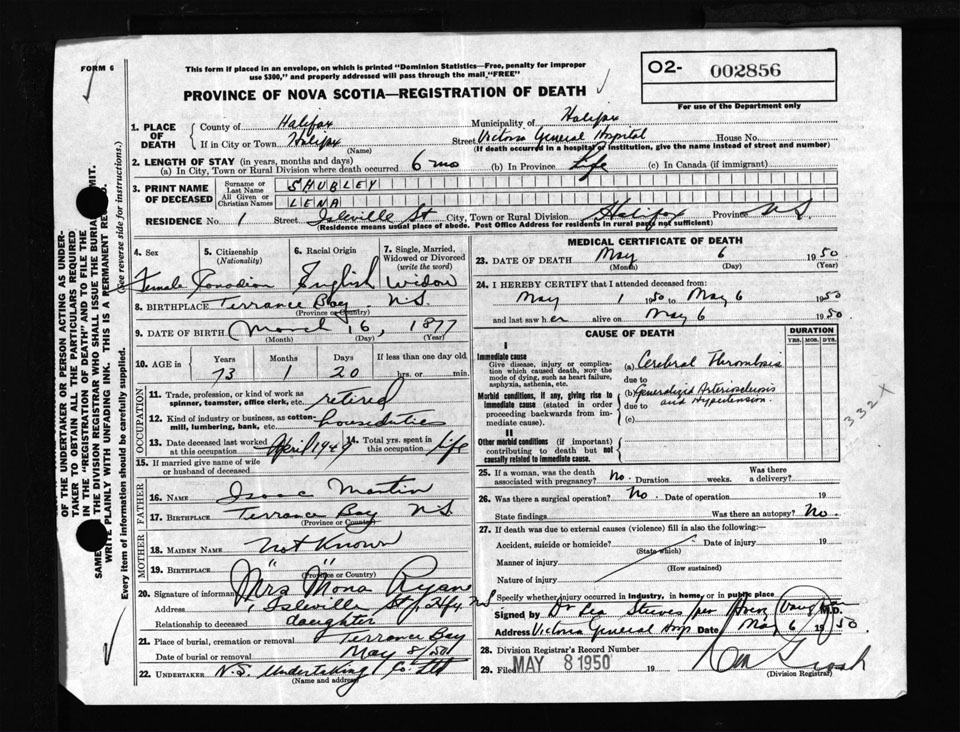 FORM 6
This form if placed in an envelope, on which is printed "Dominion Statistics—Free, penalty for improper
use $300," and properly addressed will pass through the mail "FREE"
O2- 002856
For use of the Department only
PROVINCE OF NOVA SCOTIA—REGISTRATION OF DEATH
1. PLACE OF DEATH
County of Halifax Municipality of Halifax
If in City or Town Halifax Street Victoria General Hospital House No.
(Name) (If death occurred in a hospital or institution, give the name instead of street and number)
2. LENGTH OF STAY (in years, months and days)
(a) In City, Town or Rural Division where death occurred 6 mo (b) In Province Life (c) In Canada (if immigrant)
3. PRINT NAME OF DECEASED
Surname or Last Name SHUBLEY
All Given or Christian Names LENA
RESIDENCE No. 1 Street Isleville St City, Town or Rural Division Halifax Province N.S.
(Residence means usual place of abode. Post Office Address for residents in rural parts not sufficient)
4. Sex 5. Citizenship (Nationality) 6. Racial Origin 7. Single, Married, Widowed or Divorced (write the word)
Female Canadian English Widow
8. BIRTHPLACE Terrance Bay N.S.
(Province or Country)
9. DATE OF BIRTH March 16, 1877
(Month) (Day) (Year)
10. AGE in Years Months Days If less than one day old
73 1 20 hrs. or min.
OCCUPATION
11. Trade, profession, or kind of work as spinner, teamster, office clerk, etc. retired
12. Kind of industry or business, as cotton-mill, lumbering, bank, etc. houseduties
13. Date deceased last worked at this occupation April 1949 14. Total yrs. spent in this occupation life
15. If married give name of wife or husband of deceased
FATHER
16. NAME Isaac Martin
17. BIRTHPLACE Terrance Bay N.S.
(Province or Country)
MOTHER
18. MAIDEN NAME Not Known
19. BIRTHPLACE " "
(Province or Country)
20. Signature of informant Mrs Mona Ryan
Address 1 Isleville St, Hfx NS
Relationship to deceased daughter
21. Place of burial, cremation or removal Terrance Bay
Date of burial or removal May 8/50
22. UNDERTAKER N.S. Undertaking Co. Ltd
(Name and address)
MEDICAL CERTIFICATE OF DEATH
23. DATE OF DEATH May 6 1950
(Month) (Day) (Year)
24. I HEREBY CERTIFY that I attended deceased from:
May 1 1950 to May 6 1950
and last saw her alive on May 6 1950.
CAUSE OF DEATH DURATION
YRS. MOS. DYS.
I
Immediate cause
Give disease, injury or complication which caused death, not the mode of dying, such as heart failure, asphyxia, asthenia, etc.
(a) Cerebral Thrombosis
due to
Morbid conditions, if any, giving rise to immediate cause (stated in order proceeding backwards from immediate cause).
(b) Generalized Arteriosclerosis
due to and Hypertension.
(c)
332X
II
Other morbid conditions (if important) contributing to death but not causally related to immediate cause.
25. If a woman, was the death associated with pregnancy? No. Duration weeks. Was there a delivery?
26. Was there a surgical operation? No. Date of operation 19
State findings Was there an autopsy? No.
27. If death was due to external causes (violence) fill in also the following:—
Accident, suicide or homicide? Date of injury 19
(State which)
Manner of injury
(How sustained)
Nature of injury
Specify whether injury occurred in industry, in home, or in public place
Signed by Dr Steeves per M.D.
Address Victoria General Hosp Date May 6 1950.
28. Division Registrar's Record Number
29. Filed MAY 8 1950 19
(Division Registrar)
OF THE UNDERTAKER OR PERSON ACTING AS UNDERTAKER TO OBTAIN ALL THE PARTICULARS REQUIRED
IN THE "REGISTRATION OF DEATH" AND TO FILE THE
SAME THE DIVISION REGISTRAR WHO SHALL ISSUE THE BURIAL
WRITE PLAINLY WITH UNFADING INK. THIS IS A PERMANENT
Every item of information should be carefully supplied. (See reverse side for instructions.)